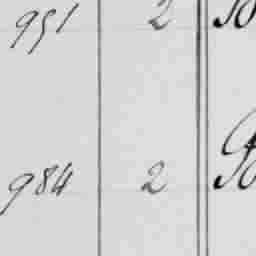 951 2
984 2